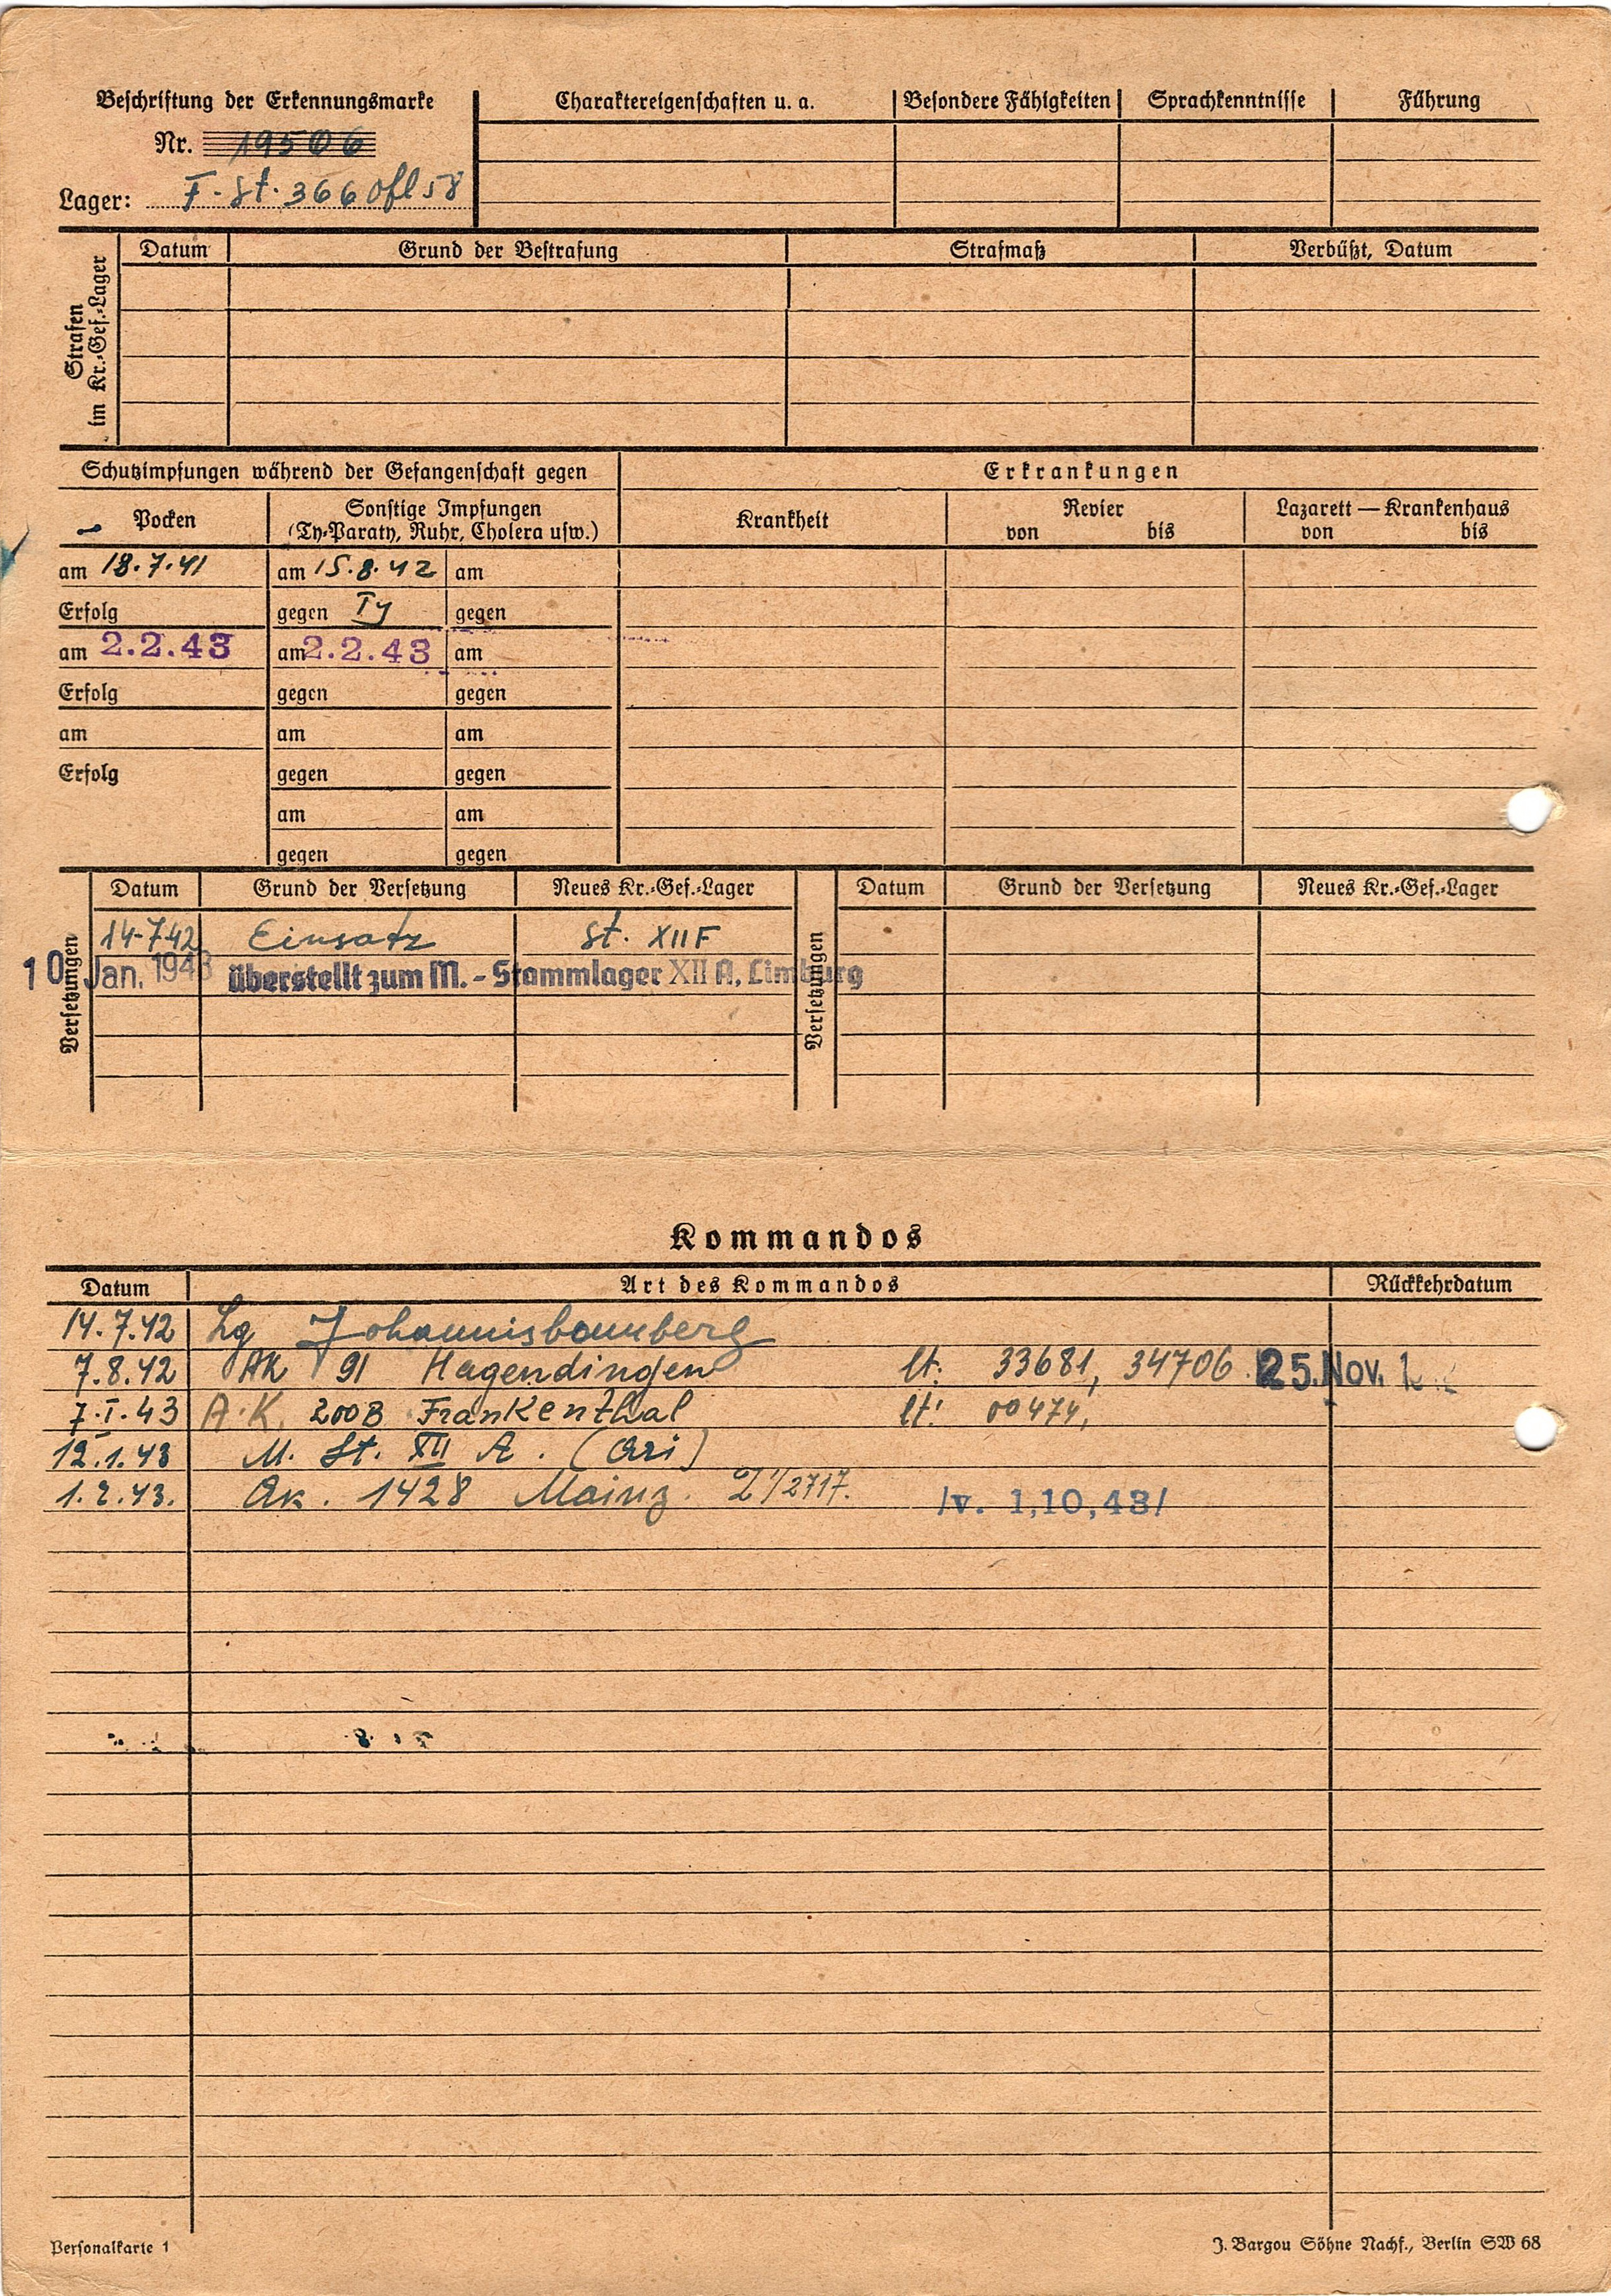 Beschriftung der Erkennungsmarke
Nr. 19506
Lager: F-St. 366 Ofl 58
Charaktereigenschaften u. a. Besondere Fähigkeiten Sprachkenntnisse Führung
Strafen im Kr.-Gef.-Lager
Datum Grund der Bestrafung Strafmaß Verbüßt, Datum
Schutzimpfungen während der Gefangenschaft gegen
Erkrankungen
Pocken
Sonstige Impfungen
(Ty-Paraty, Ruhr, Cholera usw.)
Krankheit
Revier
von bis
Lazarett — Krankenhaus
von bis
am 18.7.41 am 15.8.42 am
Erfolg gegen Ty gegen
am 2.2.43 am 2.2.43 am
Erfolg gegen gegen
am am am
Erfolg gegen gegen
am am
gegen gegen
Versetzungen
Datum Grund der Versetzung Neues Kr.-Gef.-Lager
14-7.42 Einsatz St. XII F
10. Jan. 1943 überstellt zum M.-Stammlager XII A, Limburg
Versetzungen
Datum Grund der Versetzung Neues Kr.-Gef.-Lager
Kommandos
Datum Art des Kommandos Rückkehrdatum
14.7.42 Lg Johannisbannberg
7.8.42 AK 91 Hagendingen lt. 33681, 34706 25. Nov.
7.I.43 A.K. 200B Frankenthal lt. 00474,
12.1.43 M. St. XII A.
1.2.43. Ak. 1428 Mainz /v. 1,10,43/
Personalkarte 1
J. Bargou Söhne Nachf., Berlin SW 68